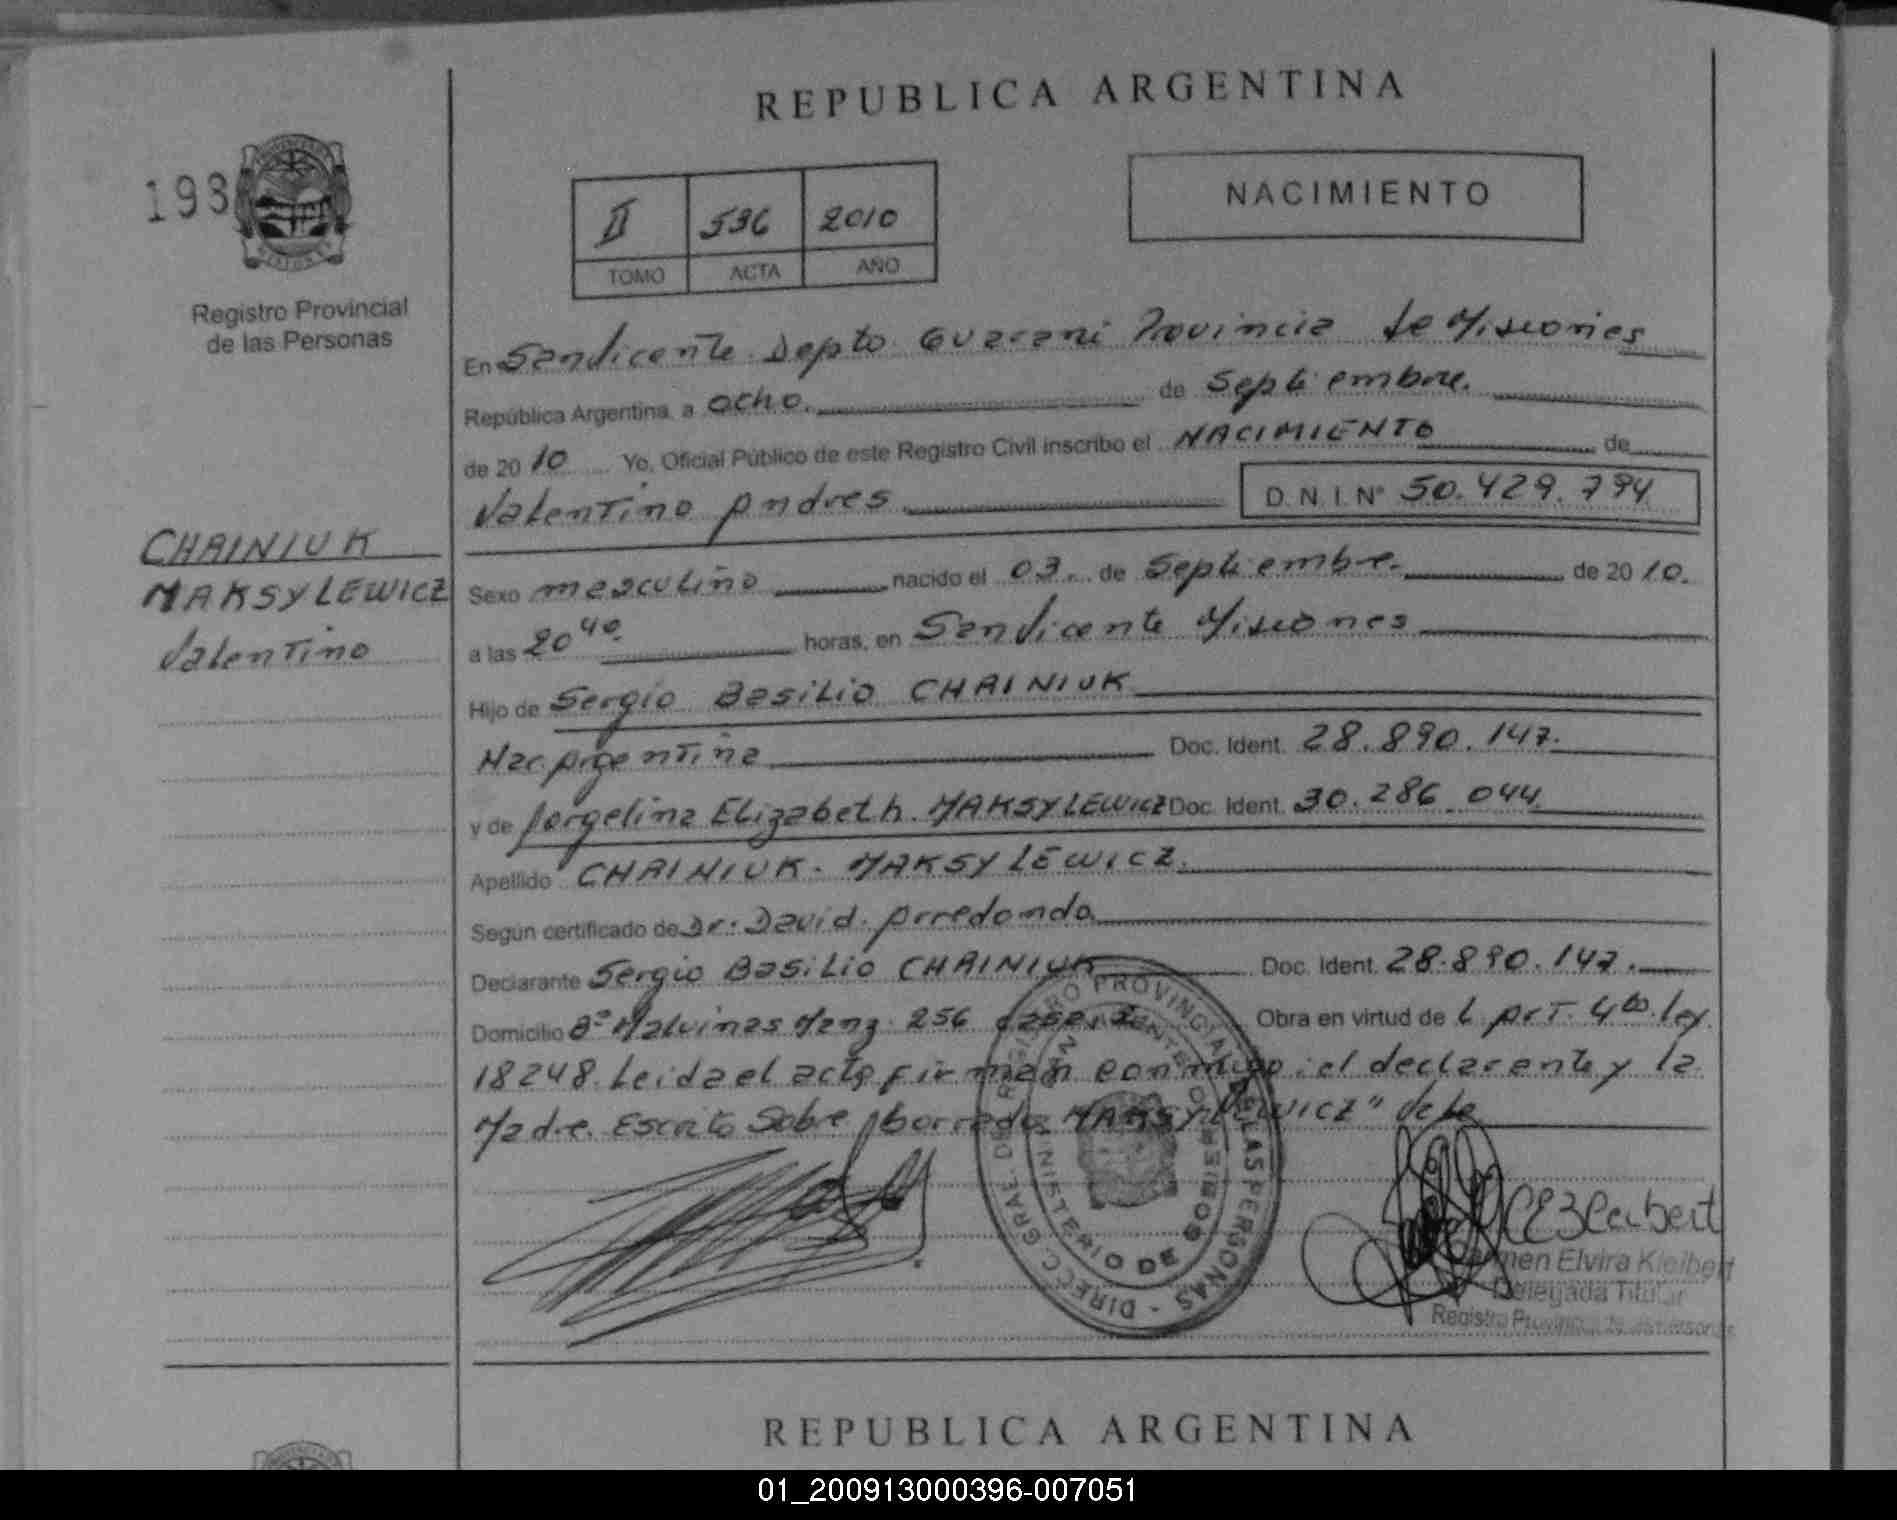 REPUBLICA ARGENTINA
193
Registro Provincial
de las Personas
II 536 2010
TOMO ACTA AÑO
NACIMIENTO
CHAINIUK
MAKSYLEWICZ
Valentino
En San Vicente Depto Guarani Provincia de Misiones
República Argentina, a ocho. de Septiembre.
de 20 10 Yo, Oficial Público de este Registro Civil inscribo el NACIMIENTO de
Valentino Andres D.N.I. Nº 50.429.794
Sexo masculino nacido el 03 de Septiembre. de 20 10.
a las 20 40 horas, en San Vicente Misiones
Hijo de Sergio Basilio CHAINIUK
Nac. Argentina Doc. Ident. 28.890.147.
y de Jorgelina Elizabeth MAKSYLEWICZ Doc. Ident. 30.286.044
Apellido CHAINIUK - MAKSYLEWICZ.
Según certificado de Dr. David Arredondo
Declarante Sergio Basilio CHAINIUK Doc. Ident. 28.890.147.
Domicilio Bº Malvinas Manz. 256 casa Obra en virtud de L Art. 4to. ley
18248. Leida el acta firman conmigo el declarante y la
Madre. Escrito Sobre borrado MAKSYLEWICZ" Vale
DIRECC. GRAL. DE REGISTRO PROVINCIAL DE LAS PERSONAS -
SAN VICENTE MISIONES
MINISTERIO DE GOB
Carmen Elvira Kleibert
Delegada Titular
Registro Provincial de las Personas
REPUBLICA ARGENTINA
01_200913000396-007051